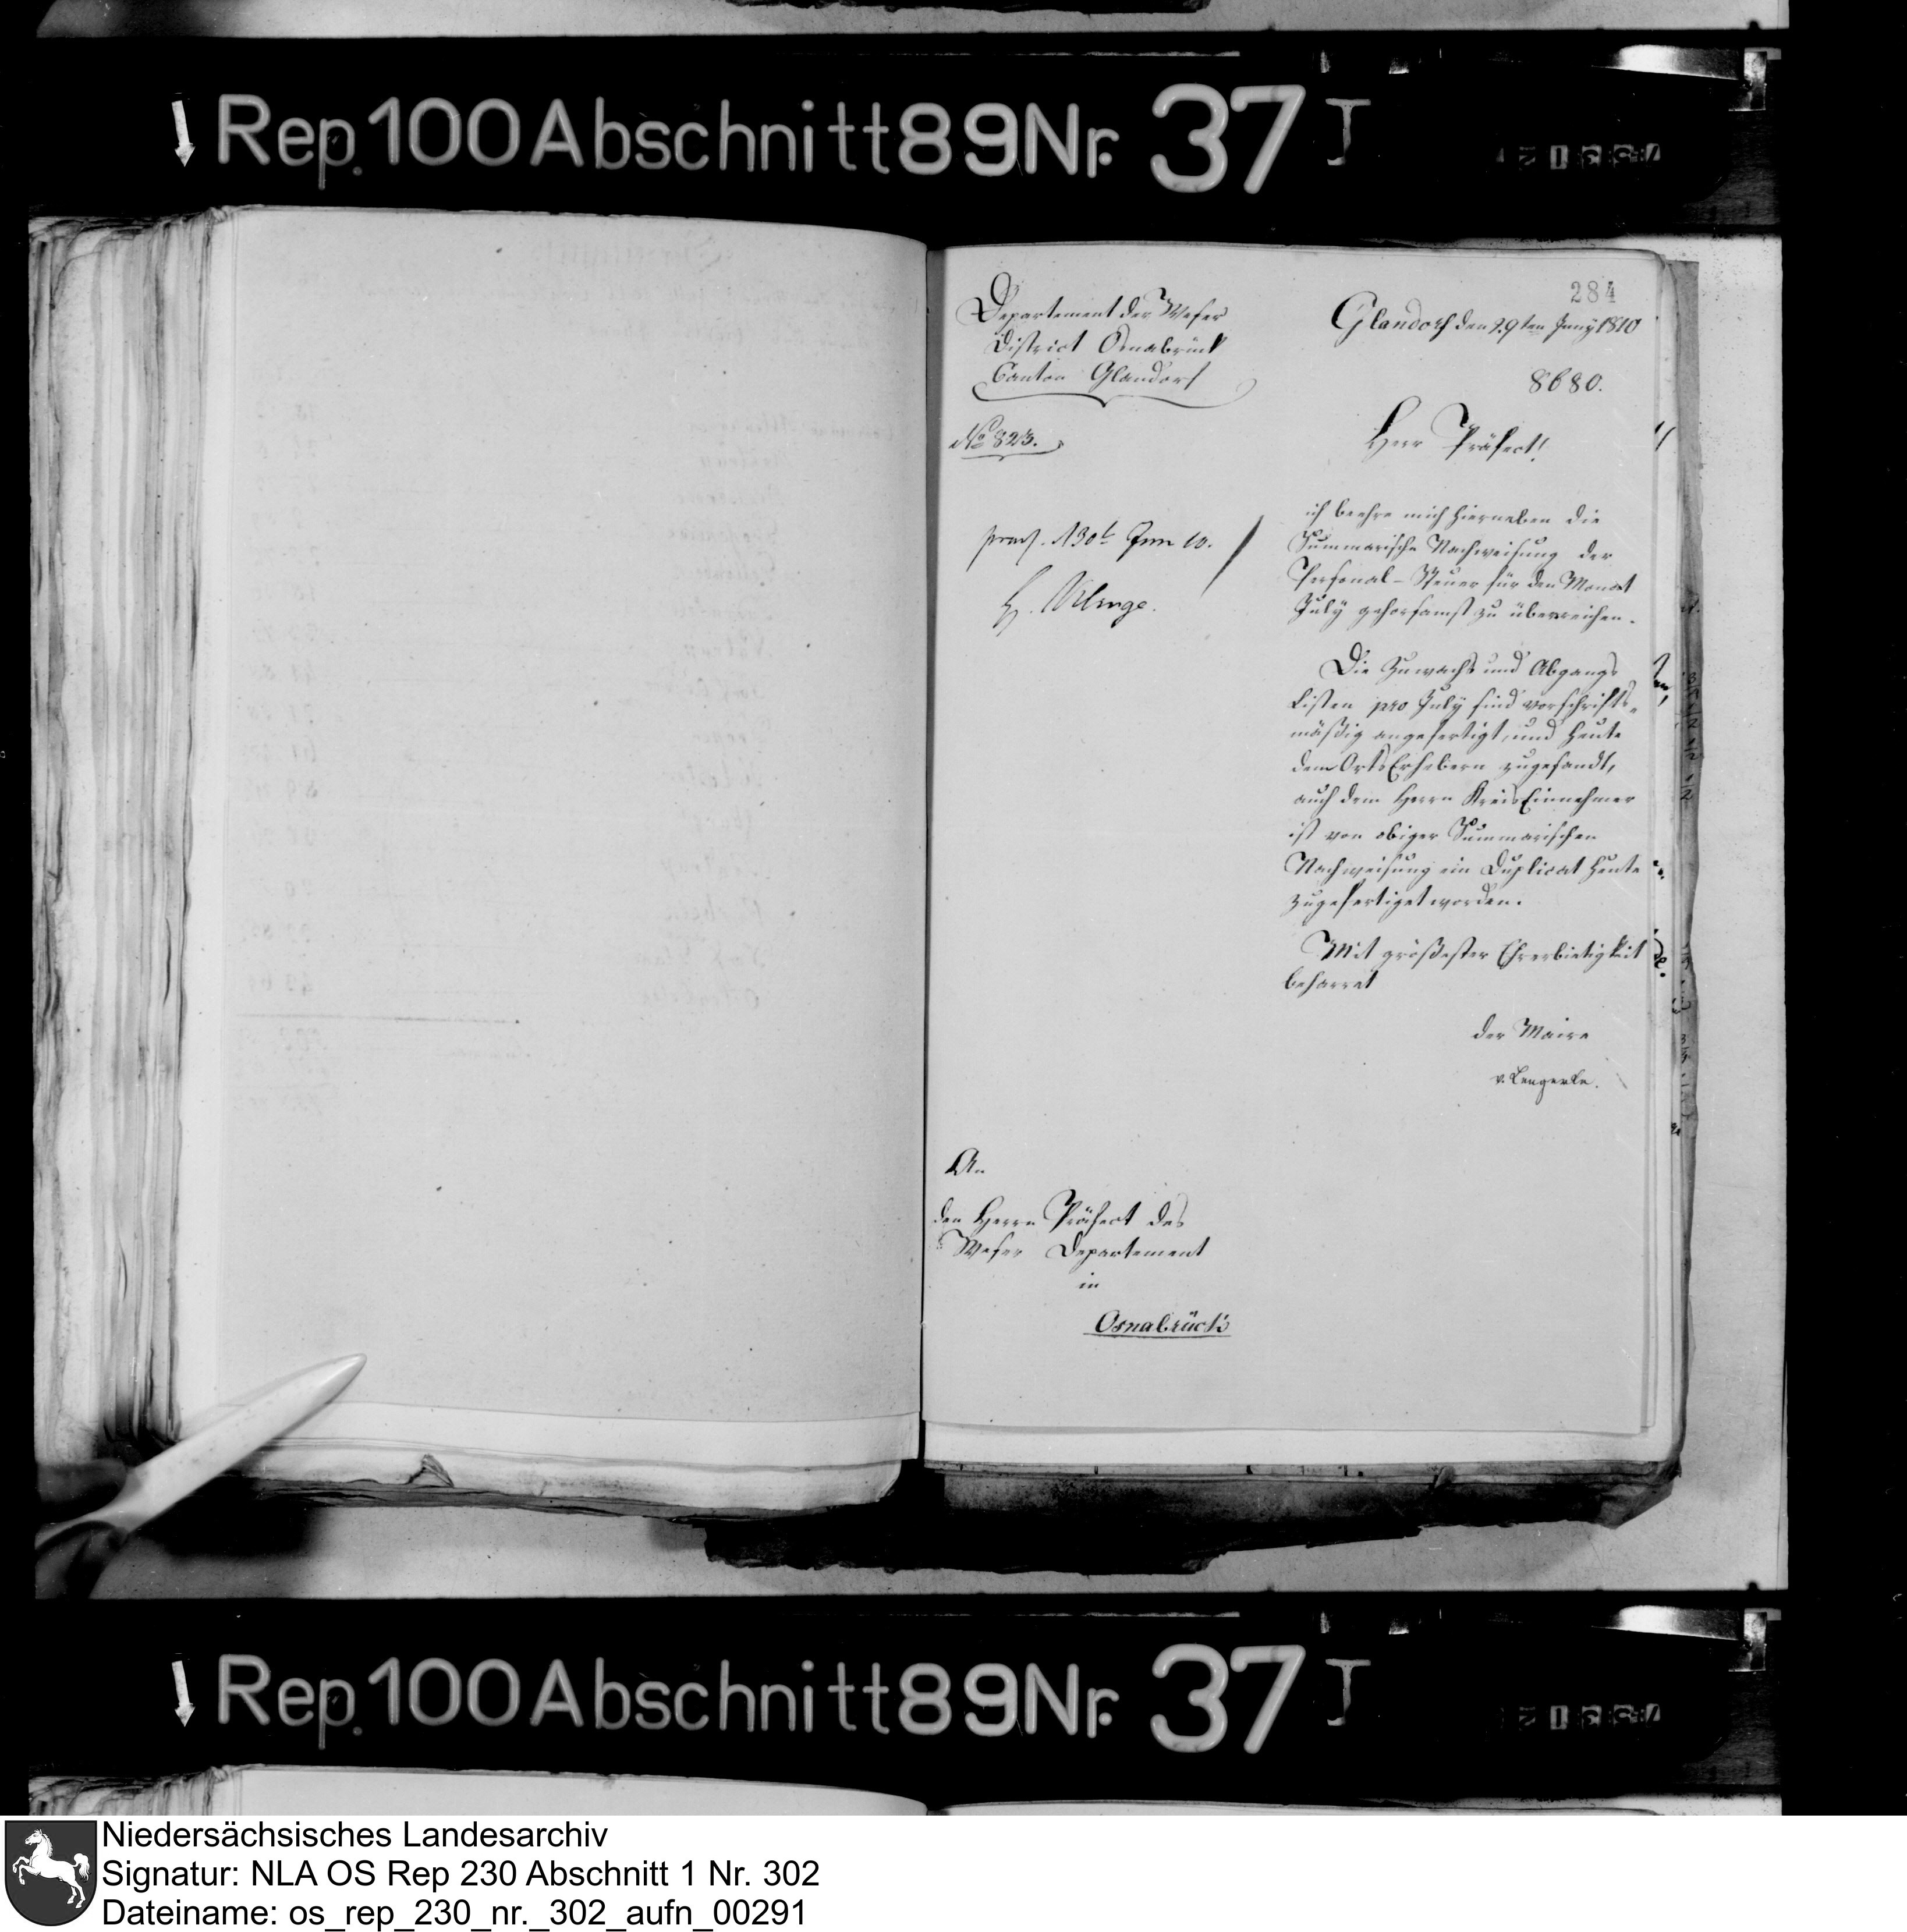 Rep. 100 Abschnitt 89 Nr. 37 I
284
Departement der Weser
District Osnabrück
Canton Glandorf
No 823.
Glandorf den 29ten Juny 1810
8680.
Herr Präfect!
praes. 30t Jun 10.
H.
ich beehre mich hierneben die
Summarische Nachweisung der
Personal-Steuer für den Monat
July gehorsamst zu überreichen.
Die Zuwachs und Abgangs
Listen pro July sind vorschrifts-
mäßig angefertigt, und heute
dem Orts Erhebern zugesandt,
auch dem Herrn Kreis Einnehmer
ist von obiger Summarischen
Nachweisung ein Duplicat heute
zugefertiget worden.
Mit größester Ehrerbietigkeit
beharret
der Maire
v. Lengerke.
An
den Herrn Präfect des
Weser Departement
in
Osnabrück
Rep. 100 Abschnitt 89 Nr. 37 I
Niedersächsisches Landesarchiv
Signatur: NLA OS Rep 230 Abschnitt 1 Nr. 302
Dateiname: os_rep_230_nr._302_aufn_00291